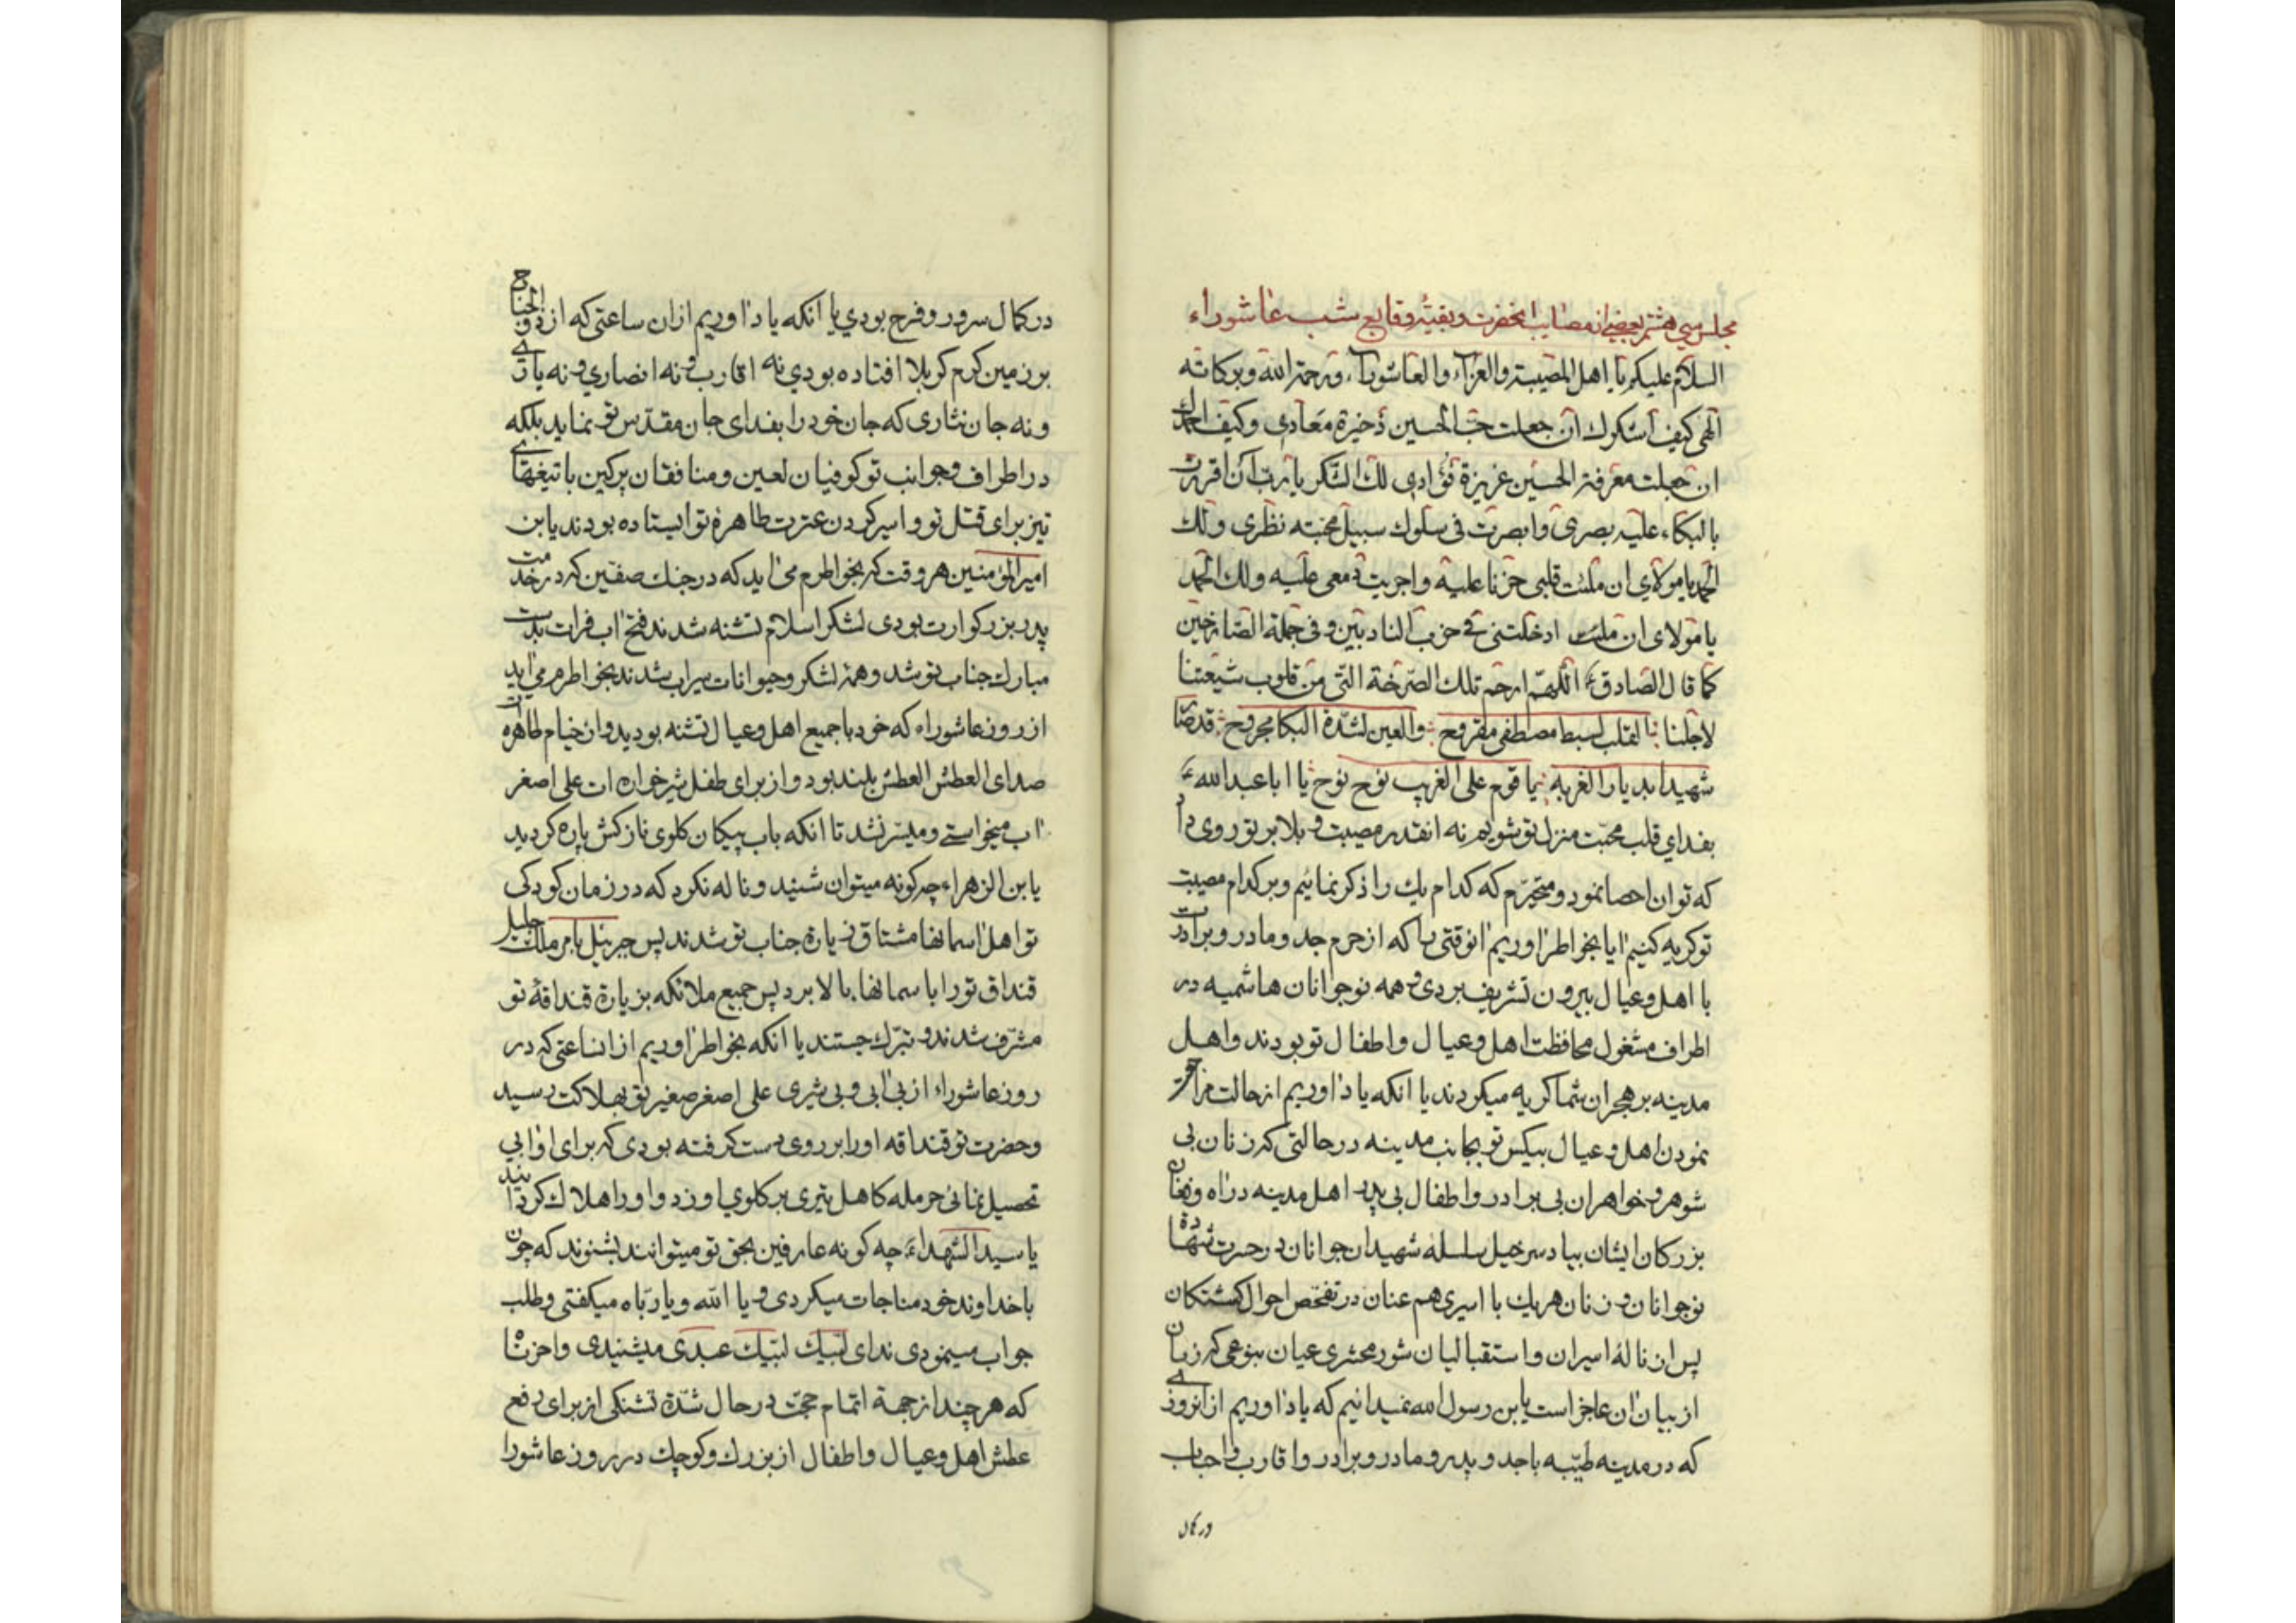 مجلس سی هشتم بعضی از مصایب آنحضرت و بقیهٔ وقایع شب عاشوراء
السلام علیکم یا اهل المصیبة والعزآء والعاشورآء ورحمة الله وبرکاته
الهی کیف اشکرك ان جعلت حبّ الحسین ذخیرة معادی وکیف احمدك
ان جعلت معرفة الحسین عزیزة فؤادی لك الشکر یا رب ان اقررت
بالبکاء علیه بصری وابصرت فی سلوك سبیل محبته نظری ولك
الحمد یا مولای ان ملئت قلبی حزنا علیه واجریت دمعی علیه ولك الحمد
یا مولای ان ادخلتنی فی حزب النادبین وفی جملة الصّارخین
کما قال الصّادقء اللّهمّ ارحم تلك الصّرخة التی من قلوب شیعتنا
لاجلنا القلب لسبط مصطفی مقروح والعین لشدّة البکا مجروح قد صار
شهیدا بدیار الغربه یا قوم علی الغریب نوح نوح یا ابا عبداللهء
بفدای قلب محبّت منزل تو شویم نه انقدر مصیبت و بلا بر تو روی داد
که توان احصا نمود و متحیّرم که کدام یك را ذکر نمائیم و بر کدام مصیبت
تو گریه کنیم ایا بخواطر اوریم انوقتی را که از حرم جد و مادر و برادرت
با اهل و عیال بیرون تشریف بردی و همه نوجوانان هاشمیه در
اطراف مشغول محافظت اهل و عیال و اطفال تو بودند و اهل
مدینه بر هجران شما گریه میکردند یا انکه یاد اوریم از حالت مراجعت
نمودن اهل و عیال بیکس تو بجانب مدینه در حالتی که زنان بی
شوهر و خواهران بی برادر و اطفال بی پدر اهل مدینه در اه و فغان
بزرگان ایشان بیاد سرخیل سلسله شهیدان جوانان در حسرت
نوجوانان و زنان هریك با اسیری هم عنان در تفحّص احوال کشتگان
پس از ناله اسیران و استقبالیان شور محشری عیان بنوعی که زبان
از بیان ان عاجز است یابن رسول الله نمیدانیم که یاد اوریم از انروزی
که در مدینه طیّبه با جد و پدر و مادر و برادر و اقارب و احباب
در کمال
در کمال سرور و فرح بودی یا انکه یاد اوریم ازان ساعتی که از ذو الجناح
بر زمین گرم کربلا افتاده بودی نه اقارب و نه انصاری و نه یاری
و نه جان نثاری که جان خود را بفدای جان مقدّس تو نماید بلکه
در اطراف و جوانب تو کوفیان لعین و منافقان پرکین با تیغهای
تیز برای قتل تو و اسیر کردن عترت طاهرهٔ تو ایستاده بودند یابن
امیرالمؤمنین هر وقت که بخواطرم می اید که در جنك صفّین که در خدمت
پدر بزرگوارت بودی لشکر اسلام تشنه شدند فتح اب فرات بدست
مبارك جناب تو شد و همهٔ لشکر و حیوانات سیراب شدند بخواطرم می اید
از روز عاشوراء که خود با جمیع اهل و عیال تشنه بودید و از خیام طاهرات
صدای العطش العطش بلند بود و از برای طفل شیرخواره ات علی اصغر
اب میخواستی و میسّر نشد تا انکه باب پیکان گلوی نازکش پاره گردید
یابن الزهراء چگونه میتوان شنید و ناله نکرد که در زمان کودکی
تو اهل اسمانها مشتاق زیارة جناب تو شدند پس جبرئیل با امر ملك جلیل
قنداق تو را با سمانها بالا برد پس جمیع ملائکه بزیارة قنداقهٔ تو
مشرّف شدند و تبرّك جستند یا انکه بخواطر اوریم از انساعتی که در
روز عاشوراء از بی ابی و بی شیری علی اصغر صغیر تو بهلاکت رسید
و حضرت تو قنداقه او را بر روی دست گرفته بودی که برای او ابی
تحصیل نمائی حرمله کاهل تیری بر گلوی او زد و او را هلاك گردانید
یا سید الشهداءء چه گونه عارفین بحق تو میتوانند بشنوند که چون
با خداوند خود مناجات میکردی و یا الله و یا ربّاه میگفتی و طلب
جواب مینمودی ندای لبّیك لبّیك عبدی میشنیدی واحزناه
که هر چند از جهة اتمام حجّت در حال شدّة تشنگی از برای دفع
عطش اهل و عیال و اطفال از بزرك و کوچك در روز عاشورا